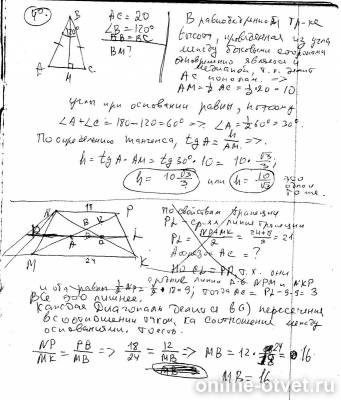 B
A
M
C
AC=20
∠B=120°
AB=BC
BM?
В равнобедренном тр-ке
высота, проведённая из угла
между боковыми сторонами
одновременно является и
медианой, т.е. делит
AC пополам. =>
AM=½AC=½·20=10
углы при основании равны, поэтому
∠A+∠C=180-120=60° => ∠A=½60°=30°
По определению тангенса, tgA=h/AM =>
h=tgA·AM=tg30°·10=10·√3/3;
h=10√3/3 или h=10/√3
это
одно и
то же.
18
N
P
B
A
L
M
24
K
По свойствам трапеции
PL - средняя линия трапеции
=21
AC=?
т.к. они
средние линии
NPM и NKP
Всё это лишнее.
Каждая диагональ делится в (·) пересечения
в соотношении
соотношению между
основаниями. То есть
NP/MK=PB/MB => 18/24=12/MB => MB=12·24/18=16
MB=16
online-otvet.ru